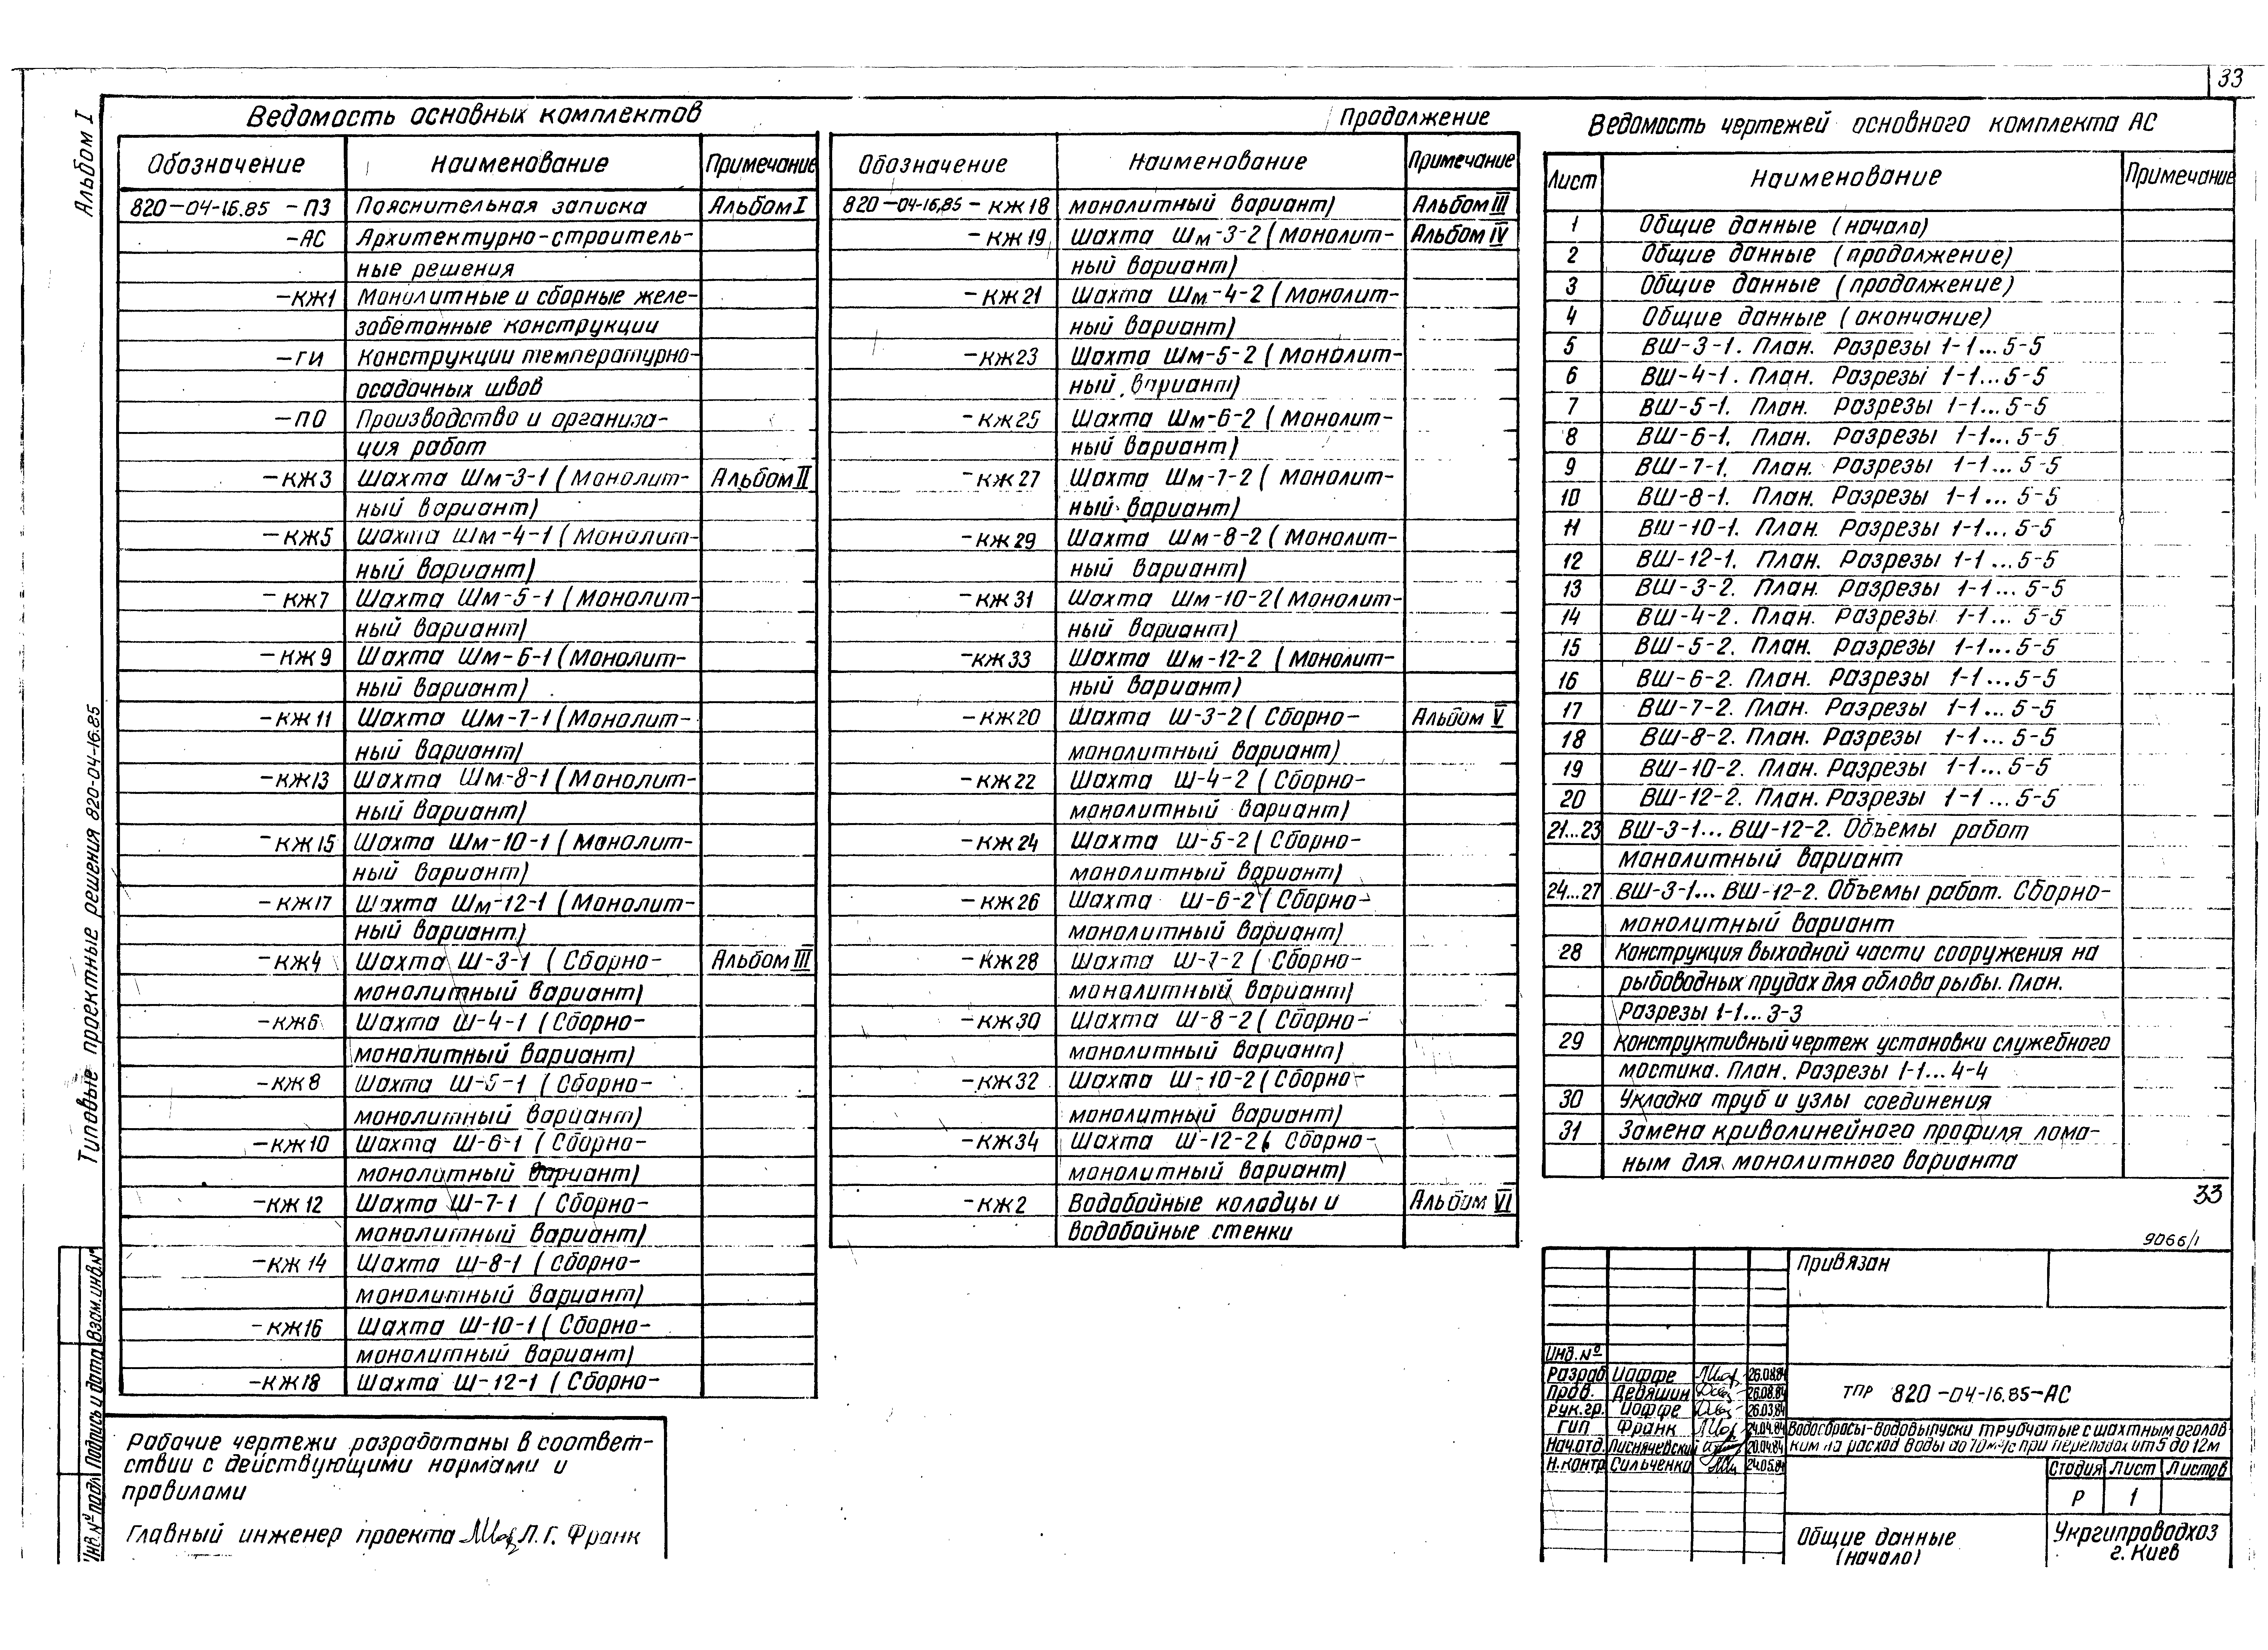 33
Альбом I
Типовые проектные решения 820-04-16.85
Взам.инв.№
Подпись и дата
Инв.№ подл
Ведомость основных комплектов
Обозначение Наименование Примечание
820-04-16.85 -ПЗ Пояснительная записка Альбом I
-АС Архитектурно-строитель-
ные решения
-КЖ1 Монолитные и сборные желе-
забетонные конструкции
-ГИ Конструкции температурно-
осадочных швов
-ПО Производство и организа-
ция работ
-КЖ3 Шахта Шм-3-1 (Монолит- Альбом II
ный вариант)
-КЖ5 Шахта Шм-4-1 (Монолит-
ный вариант)
-КЖ7 Шахта Шм-5-1 (Монолит-
ный вариант)
-КЖ9 Шахта Шм-6-1 (Монолит-
ный вариант)
-КЖ11 Шахта Шм-7-1 (Монолит-
ный вариант)
-КЖ13 Шахта Шм-8-1 (Монолит-
ный вариант)
-КЖ15 Шахта Шм-10-1 (Монолит-
ный вариант)
-КЖ17 Шахта Шм-12-1 (Монолит-
ный вариант)
-КЖ4 Шахта Ш-3-1 (Сборно- Альбом III
монолитный вариант)
-КЖ6 Шахта Ш-4-1 (Сборно-
монолитный вариант)
-КЖ8 Шахта Ш-5-1 (Сборно-
монолитный вариант)
-КЖ10 Шахта Ш-6-1 (Сборно-
монолитный вариант)
-КЖ12 Шахта Ш-7-1 (Сборно-
монолитный вариант)
-КЖ14 Шахта Ш-8-1 (Сборно-
монолитный вариант)
-КЖ16 Шахта Ш-10-1 (Сборно-
монолитный вариант)
-КЖ18 Шахта Ш-12-1 (Сборно-
Рабочие чертежи разработаны в соответ-
ствии с действующими нормами и
правилами
Главный инженер проекта Л.Г. Франк
Продолжение
Обозначение Наименование Примечание
820-04-16.85 -КЖ18 монолитный вариант) Альбом III
-КЖ19 Шахта Шм-3-2 (Монолит- Альбом IV
ный вариант)
-КЖ21 Шахта Шм-4-2 (Монолит-
ный вариант)
-КЖ23 Шахта Шм-5-2 (Монолит-
ный вариант)
-КЖ25 Шахта Шм-6-2 (Монолит-
ный вариант)
-КЖ27 Шахта Шм-7-2 (Монолит-
ный вариант)
-КЖ29 Шахта Шм-8-2 (Монолит-
ный вариант)
-КЖ31 Шахта Шм-10-2 (Монолит-
ный вариант)
-КЖ33 Шахта Шм-12-2 (Монолит-
ный вариант)
-КЖ20 Шахта Ш-3-2 (Сборно- Альбом V
монолитный вариант)
-КЖ22 Шахта Ш-4-2 (Сборно-
монолитный вариант)
-КЖ24 Шахта Ш-5-2 (Сборно-
монолитный вариант)
-КЖ26 Шахта Ш-6-2 (Сборно-
монолитный вариант)
-КЖ28 Шахта Ш-7-2 (Сборно-
монолитный вариант)
-КЖ30 Шахта Ш-8-2 (Сборно-
монолитный вариант)
-КЖ32 Шахта Ш-10-2 (Сборно-
монолитный вариант)
-КЖ34 Шахта Ш-12-2 (Сборно-
монолитный вариант)
-КЖ2 Водобойные колодцы и Альбом VI
водобойные стенки
Ведомость чертежей основного комплекта АС
Лист Наименование Примечание
1 Общие данные (начало)
2 Общие данные (продолжение)
3 Общие данные (продолжение)
4 Общие данные (окончание)
5 ВШ-3-1. План. Разрезы 1-1...5-5
6 ВШ-4-1. План. Разрезы 1-1...5-5
7 ВШ-5-1. План. Разрезы 1-1...5-5
8 ВШ-6-1. План. Разрезы 1-1...5-5
9 ВШ-7-1. План. Разрезы 1-1...5-5
10 ВШ-8-1. План. Разрезы 1-1...5-5
11 ВШ-10-1. План. Разрезы 1-1...5-5
12 ВШ-12-1. План. Разрезы 1-1...5-5
13 ВШ-3-2. План. Разрезы 1-1...5-5
14 ВШ-4-2. План. Разрезы 1-1...5-5
15 ВШ-5-2. План. Разрезы 1-1...5-5
16 ВШ-6-2. План. Разрезы 1-1...5-5
17 ВШ-7-2. План. Разрезы 1-1...5-5
18 ВШ-8-2. План. Разрезы 1-1...5-5
19 ВШ-10-2. План. Разрезы 1-1...5-5
20 ВШ-12-2. План. Разрезы 1-1...5-5
21...23 ВШ-3-1... ВШ-12-2. Объемы работ
монолитный вариант
24...27 ВШ-3-1... ВШ-12-2. Объемы работ. Сборно-
монолитный вариант
28 Конструкция выходной части сооружения на
рыбоводных прудах для облова рыбы. План.
Разрезы 1-1...3-3
29 Конструктивный чертеж установки служебного
мостика. План. Разрезы 1-1...4-4
30 Укладка труб и узлы соединения
31 Замена криволинейного профиля лома-
ным для монолитного варианта
33
9066/1
Привязан
Инв.№
Разраб Иоффе 26.08.84
Пров. Девяшин 26.08.84
Рук.гр. Иоффе 26.03.84
ГИП Франк 24.04.84
Нач.отд. Лиснячевский 20.04.84
Н.контр Сильченко 24.05.84
ТПР 820-04-16.85-АС
Водосбросы-водовыпуски трубчатые с шахтным оголов
ком на расход воды до 70м³/с при перепадах от 5 до 12м
Стадия Лист Листов
Р 1
Общие данные
(начало)
Укргипроводхоз
г. Киев